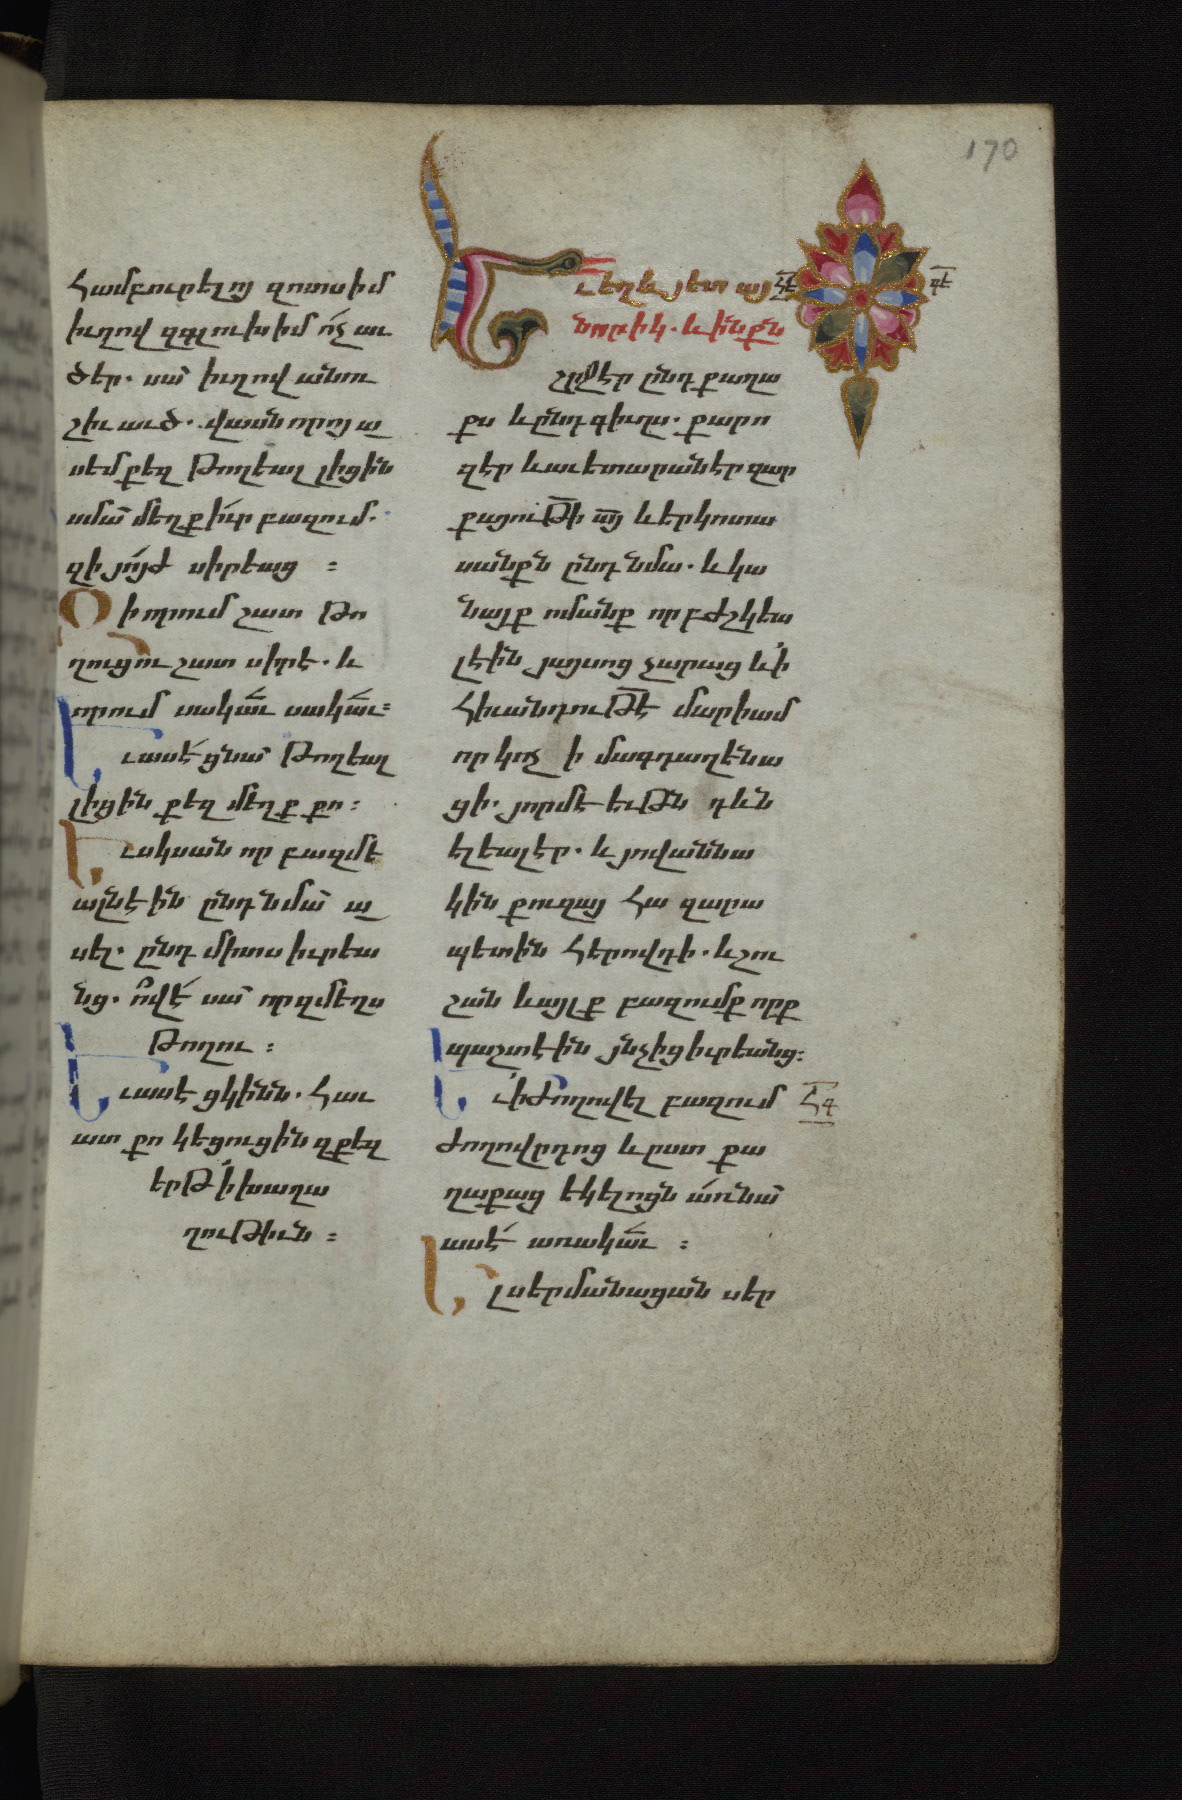 170
համբուրելոյ զոտս իմ
իւղով զգլուխ իմ ոչ աւ
ծեր. սա՛ իւղով անու
շիւ աւծ. վասն որոյ ա
սեմ քեզ թողեալ լիցին
սմա՛ մեղք իւր բազում.
զի յոյժ սիրեաց :
Ո ի որում շատ թո
ղուցու շատ սիրէ. և
որում սակաւ սակաւ:
Եւ ասէ ցնա՛ թողեալ
լիցին քեզ մեղք քո:
Եւ սկսան որ բազմե
ալն էին ընդ նմա՛ ա
սել. ընդ միտս իւրեա
նց. ո՞վ է սա՛ որ զմեղս
թողու :
Եւ ասէ ցկինն. հաւ
ատ քո կեցուցին զքեզ
երթ ի խաղա
ղութիւն :
Եւ եղև յետ այ հէ զէ
նորիկ. և ինքն
շրջէր ընդ քաղա
քս և ընդ գիւղս. քարո
զէր և աւետարանէր զար
քայութի այ և երկոտա
սանքն ընդ նմա. և կա
նայք ոմանք որ բժշկեա
լ էին յայսոց չարաց և ի
հիւանդութէ մարիամ
որ կոչ ի մագդաղենա
ցի. յորմէ եւթն դևն
ելեալ էր. և յովաննա
կին քուզայ հազարա
պետին հերովդի. և շու
շան և այլք բազումք որք
պաշտէին յնչից իւրեանց:
Եւ ի ժողովել բազում հզ
ժողովրդոց և ըստ քա
ղաքաց եկելոցն առ նա՛
ասէ առակաւ :
Ել սերմանացան սեր